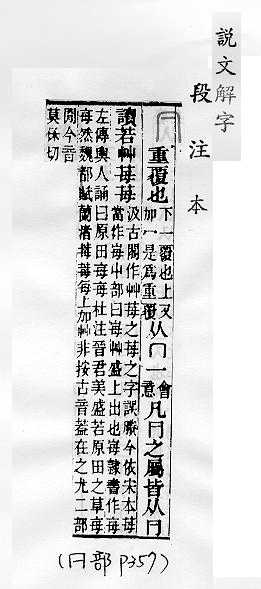 說文解字
段注本
重覆也下一覆也上又加一是爲重覆从冂一會意凡冃之屬皆从冃
讀若艸苺苺汲古閣作艸苺之苺之字誤厥今依宋本苺當作每屮部曰每艸盛上出也每隸書作苺
左傳輿人誦曰原田每每杜注晉君美盛若原田之草每
每然魏都賦蘭渚莓莓每上加艸非按古音葢在之尤二部
閒今音
莫保切
(冃部 P357)